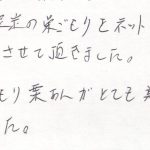 の巣ごもりをネット
させて頂きました。
もり葉あんがとても
た。